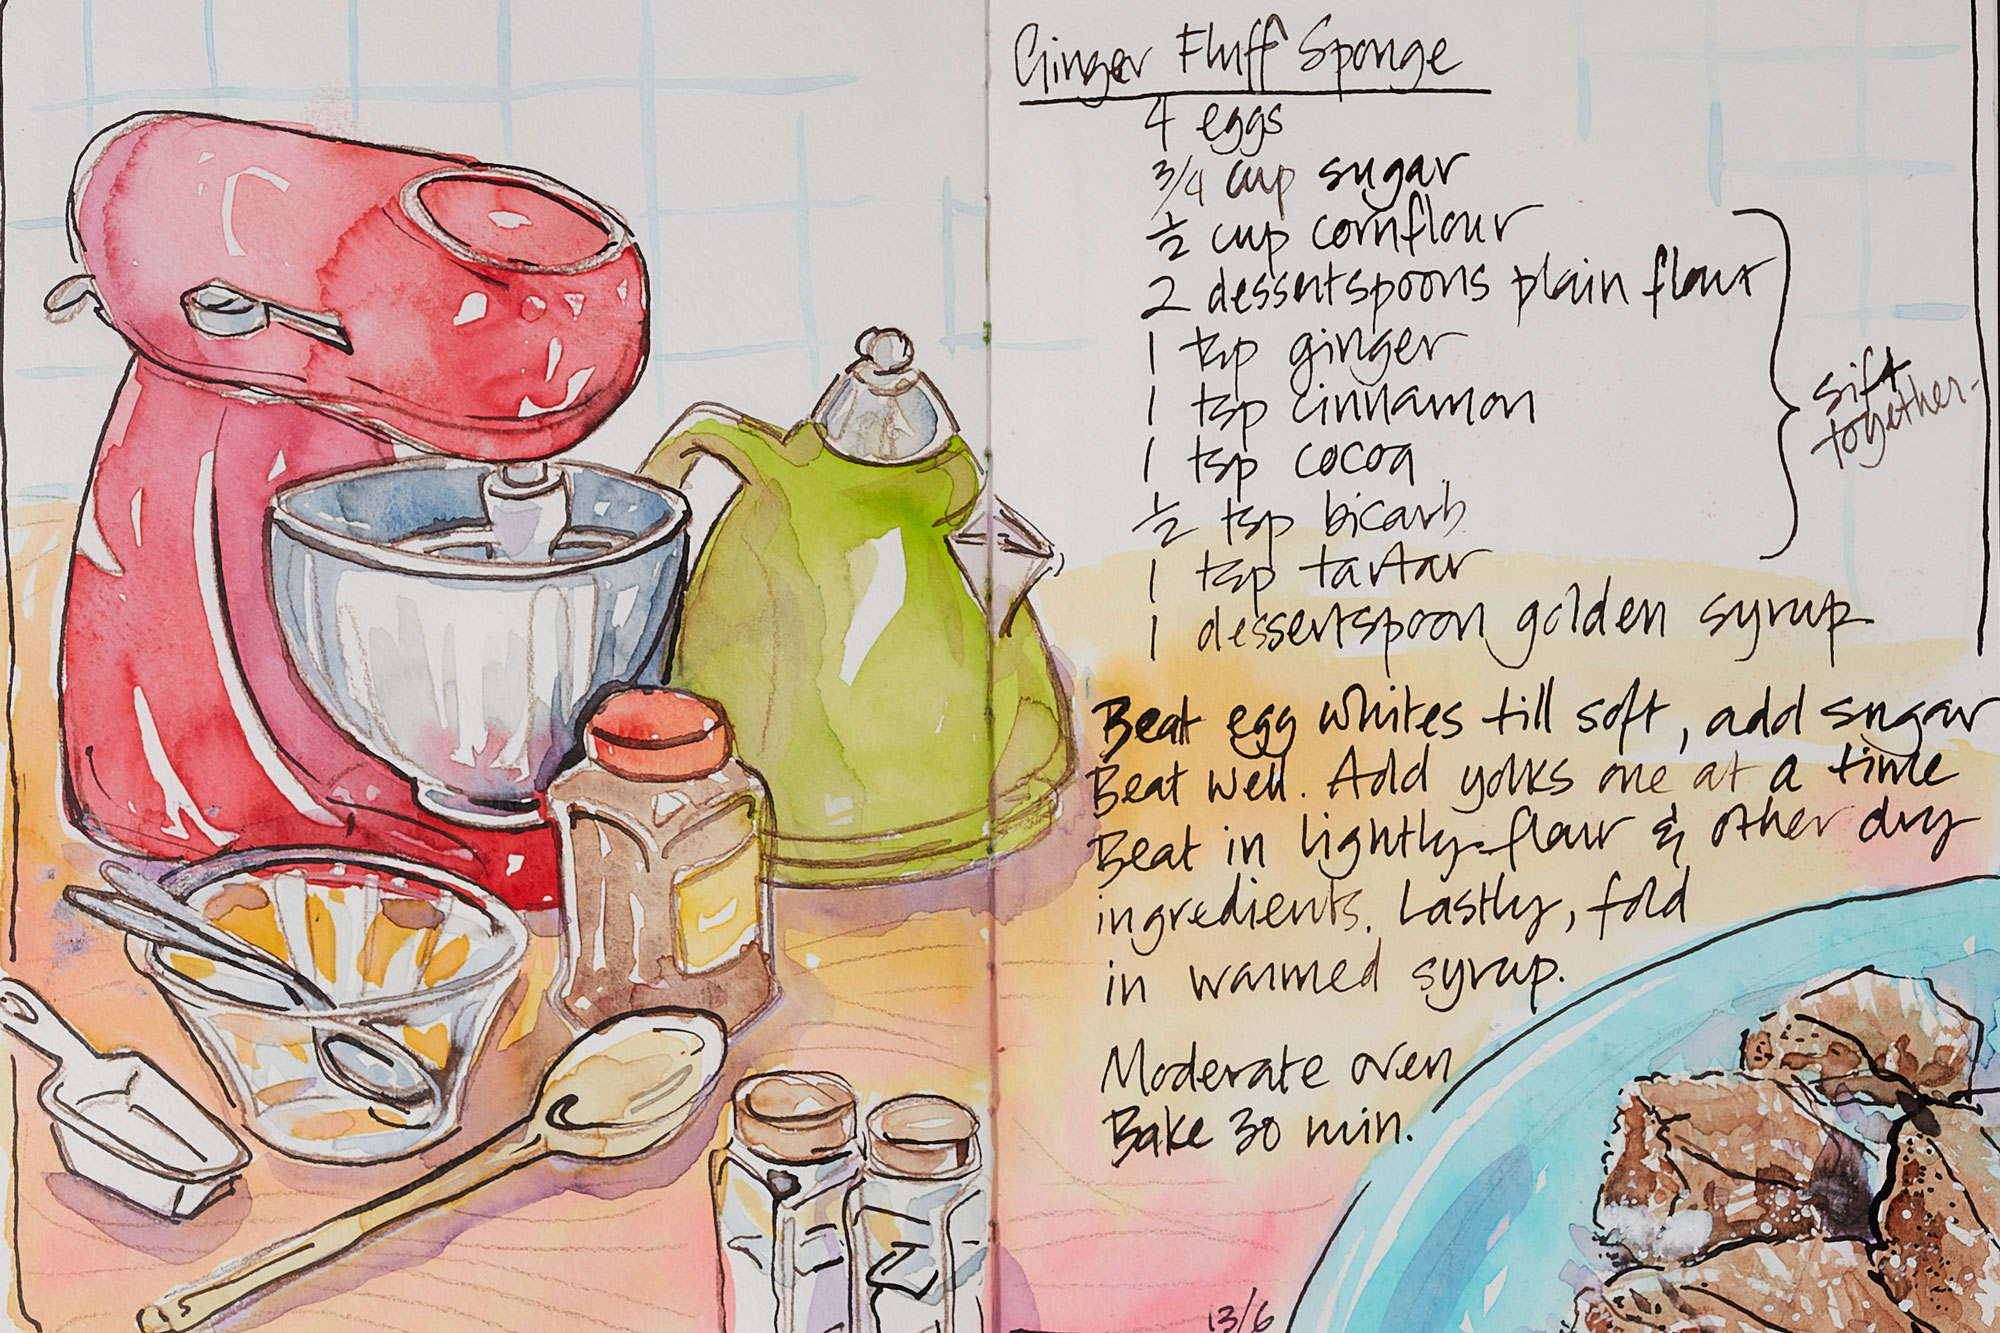 Ginger Fluff Sponge
4 eggs
3/4 cup sugar
½ cup cornflour
2 dessertspoons plain flour
1 tsp ginger
1 tsp cinnamon
1 tsp cocoa
½ tsp bicarb
1 tsp tartar
sift
together
1 dessertspoon golden syrup
Beat egg whites till soft, add sugar
Beat well. Add yolks one at a time
Beat in lightly flour & other dry
ingredients. Lastly, fold
in warmed syrup.
Moderate oven
Bake 30 min.
13/6